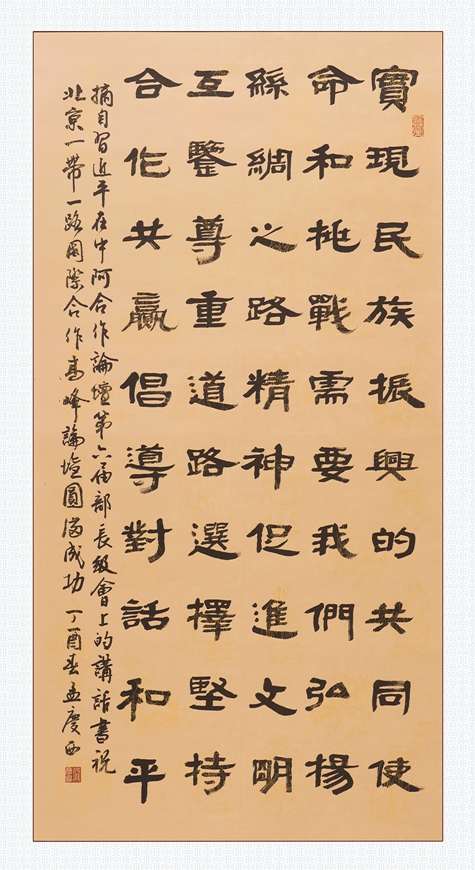 實現民族振興的共同使
命和挑戰需要我們弘揚
絲綢之路精神促進文明
互鑒尊重道路選擇堅持
合作共贏倡導對話和平
摘自習近平在中阿合作論壇第六届部長級會上的講話書祝
北京一帶一路國際合作高峰論壇圓滿成功 丁酉春孟慶西